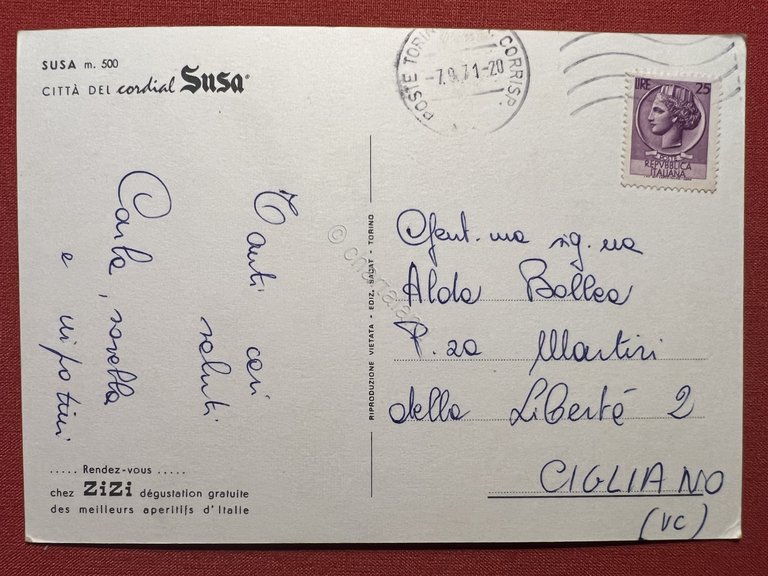 SUSA m. 500
CITTÀ DEL cordial Susa
Tanti cari
saluti
Carla, sorella
e nipotini
..... Rendez-vous .....
chez ZiZi dégustation gratuite
des meilleurs aperitifs d'Italie
RIPRODUZIONE VIETATA - EDIZ. SACAT - TORINO
CORRISP.
POSTE TORINO
-7.9.71-20
LIRE 25
POSTE
REPVBBLICA
ITALIANA
Gent.ma sig.na
Aldo Bollea
P.za Martiri
della Libertà 2
CIGLIANO
(VC)